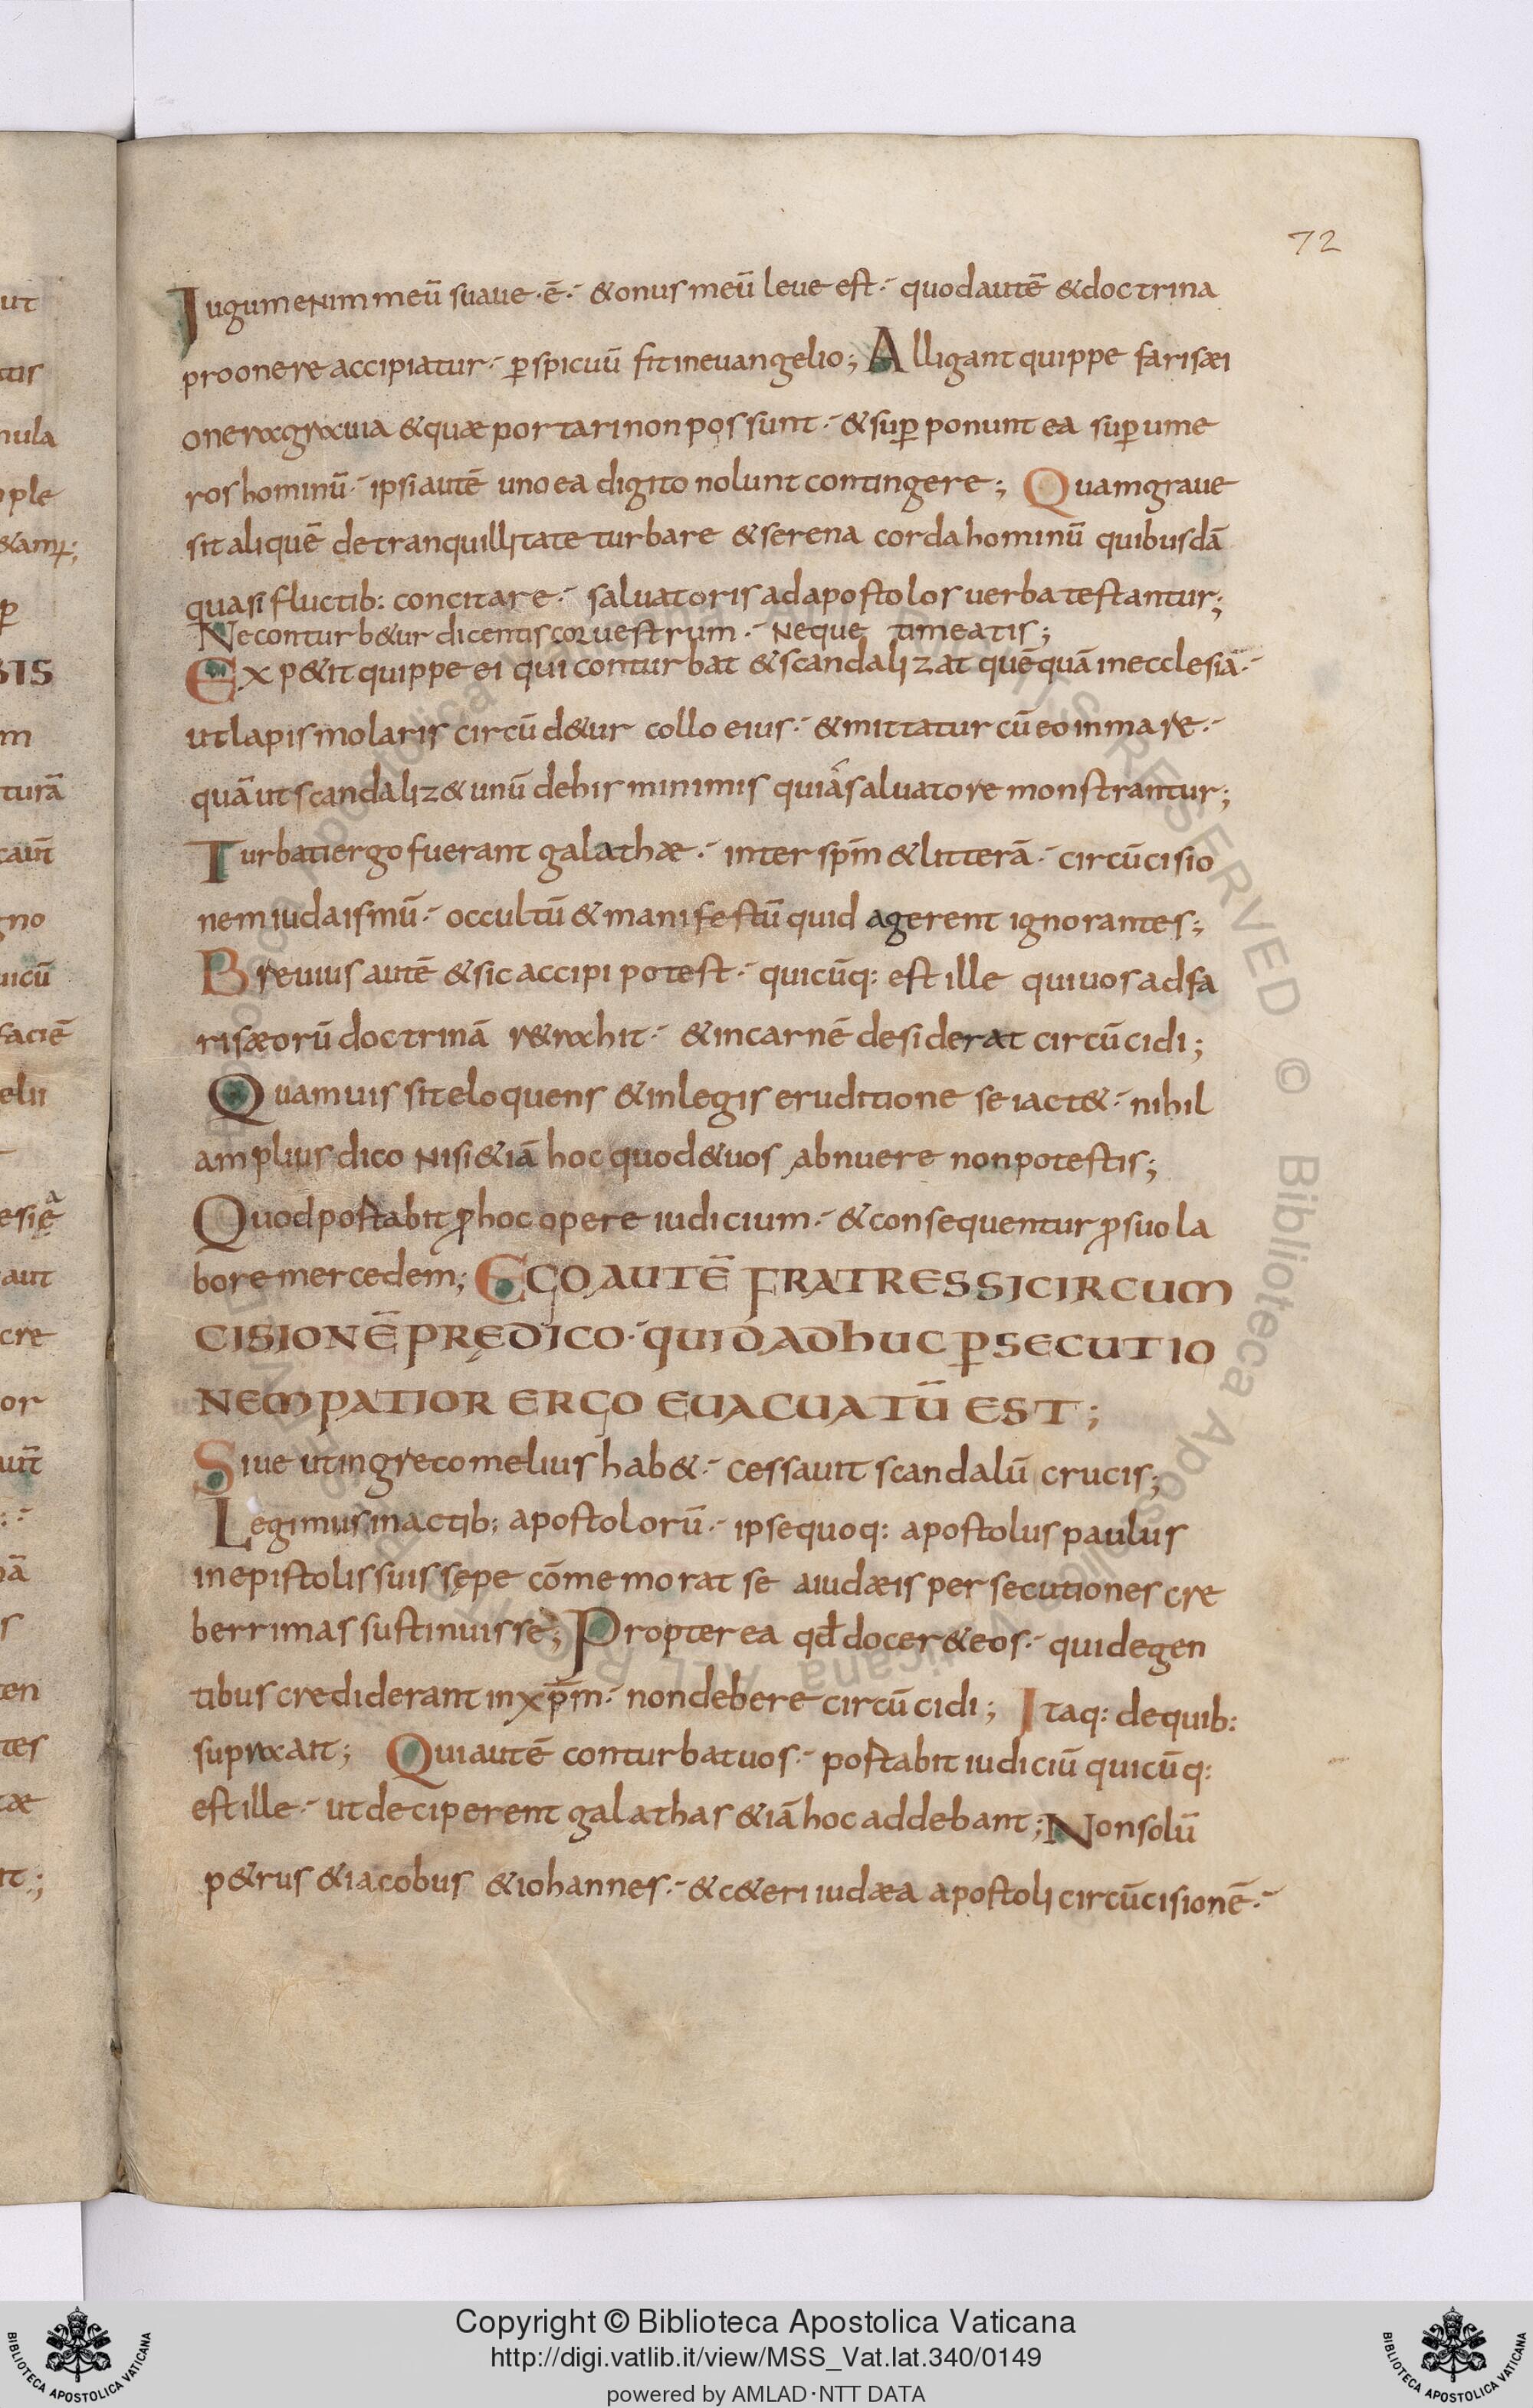 72
Iugum enim meū suaue·ē·⁊ & onus meū leue est·⁊ quod autē & doctrina
pro onere accipiatur·⁊ ꝑspicuū fit in euangelio; Alligant quippe farisæi
onera grauia & quæ portari non possunt·⁊ & suꝑponunt ea suꝑ ume
ros hominū·⁊ ipsi autē uno ea digito nolunt contingere; Quam graue
sit aliquē de tranquillitate turbare & serena corda hominū quibusdā
quasi fluctib: concitare·⁊ saluatoris ad apostolos uerba testantur;
Ne conturb&ur dicentis cor uestrum·⁊ Neque timeatis;
Exp&it quippe ei qui conturbat & scandalizat quēquā in ecclesiā·⁊
ut lapis molaris circūd&ur collo eius·⁊ & mittatur cū eo in mare·⁊
quā ut scandaliz& unū de his minimis qui á saluatore monstrantur;
Turbati ergo fuerant galathæ·⁊ inter spm̄ & litterā·⁊ circūcisio
nem iudaismū·⁊ occultū & manifestū quid agerent ignorantes;
Breuius autē & sic accipi potest·⁊ quicūq: est ille qui uos ad fa
risæorū doctrinā r&rahit·⁊ & in carnē desiderat circūcidi;
Quamuis sit eloquens & in legis eruditione se iact&·⁊ nihil
amplius dico Nisi &iā hoc quod & uos abnuere non potestis;
Quod postabit ꝓ hoc opere iudicium·⁊ & consequentur ꝓ suo la
bore mercedem; EGO AUTĒ FRATRES SI CIRCUM
CISIONĒ PRĘDICO·⁊ QUID ADHUC ꝑSECUTIO
NEM PATIOR ERGO EUACUATŪ EST;
Siue ut in greco melius hab&·⁊ cessauit scandalū crucis;
Legimus in actib; apostolorū·⁊ ipse quoq: apostolus paulus
in epistolis suis sępe cōmemorat se a iudæis persecutiones cre
berrimas sustinuisse; Propterea qđ docer& eos·⁊ qui de gen
tibus crediderant in xp̄m·⁊ non debere circūcidi; Itaq: de quib:
supra ait; Qui autē conturbat uos·⁊ postabit iudiciū quicūq:
est ille·⁊ ut deciperent galathas &iā hoc addebant; Non solū
p&rus & iacobus & iohannes·⁊ & c&eri iudæa apostoli circūcisionē·⁊
Copyright © Biblioteca Apostolica Vaticana
http://digi.vatlib.it/view/MSS_Vat.lat.340/0149
powered by AMLAD·NTT DATA